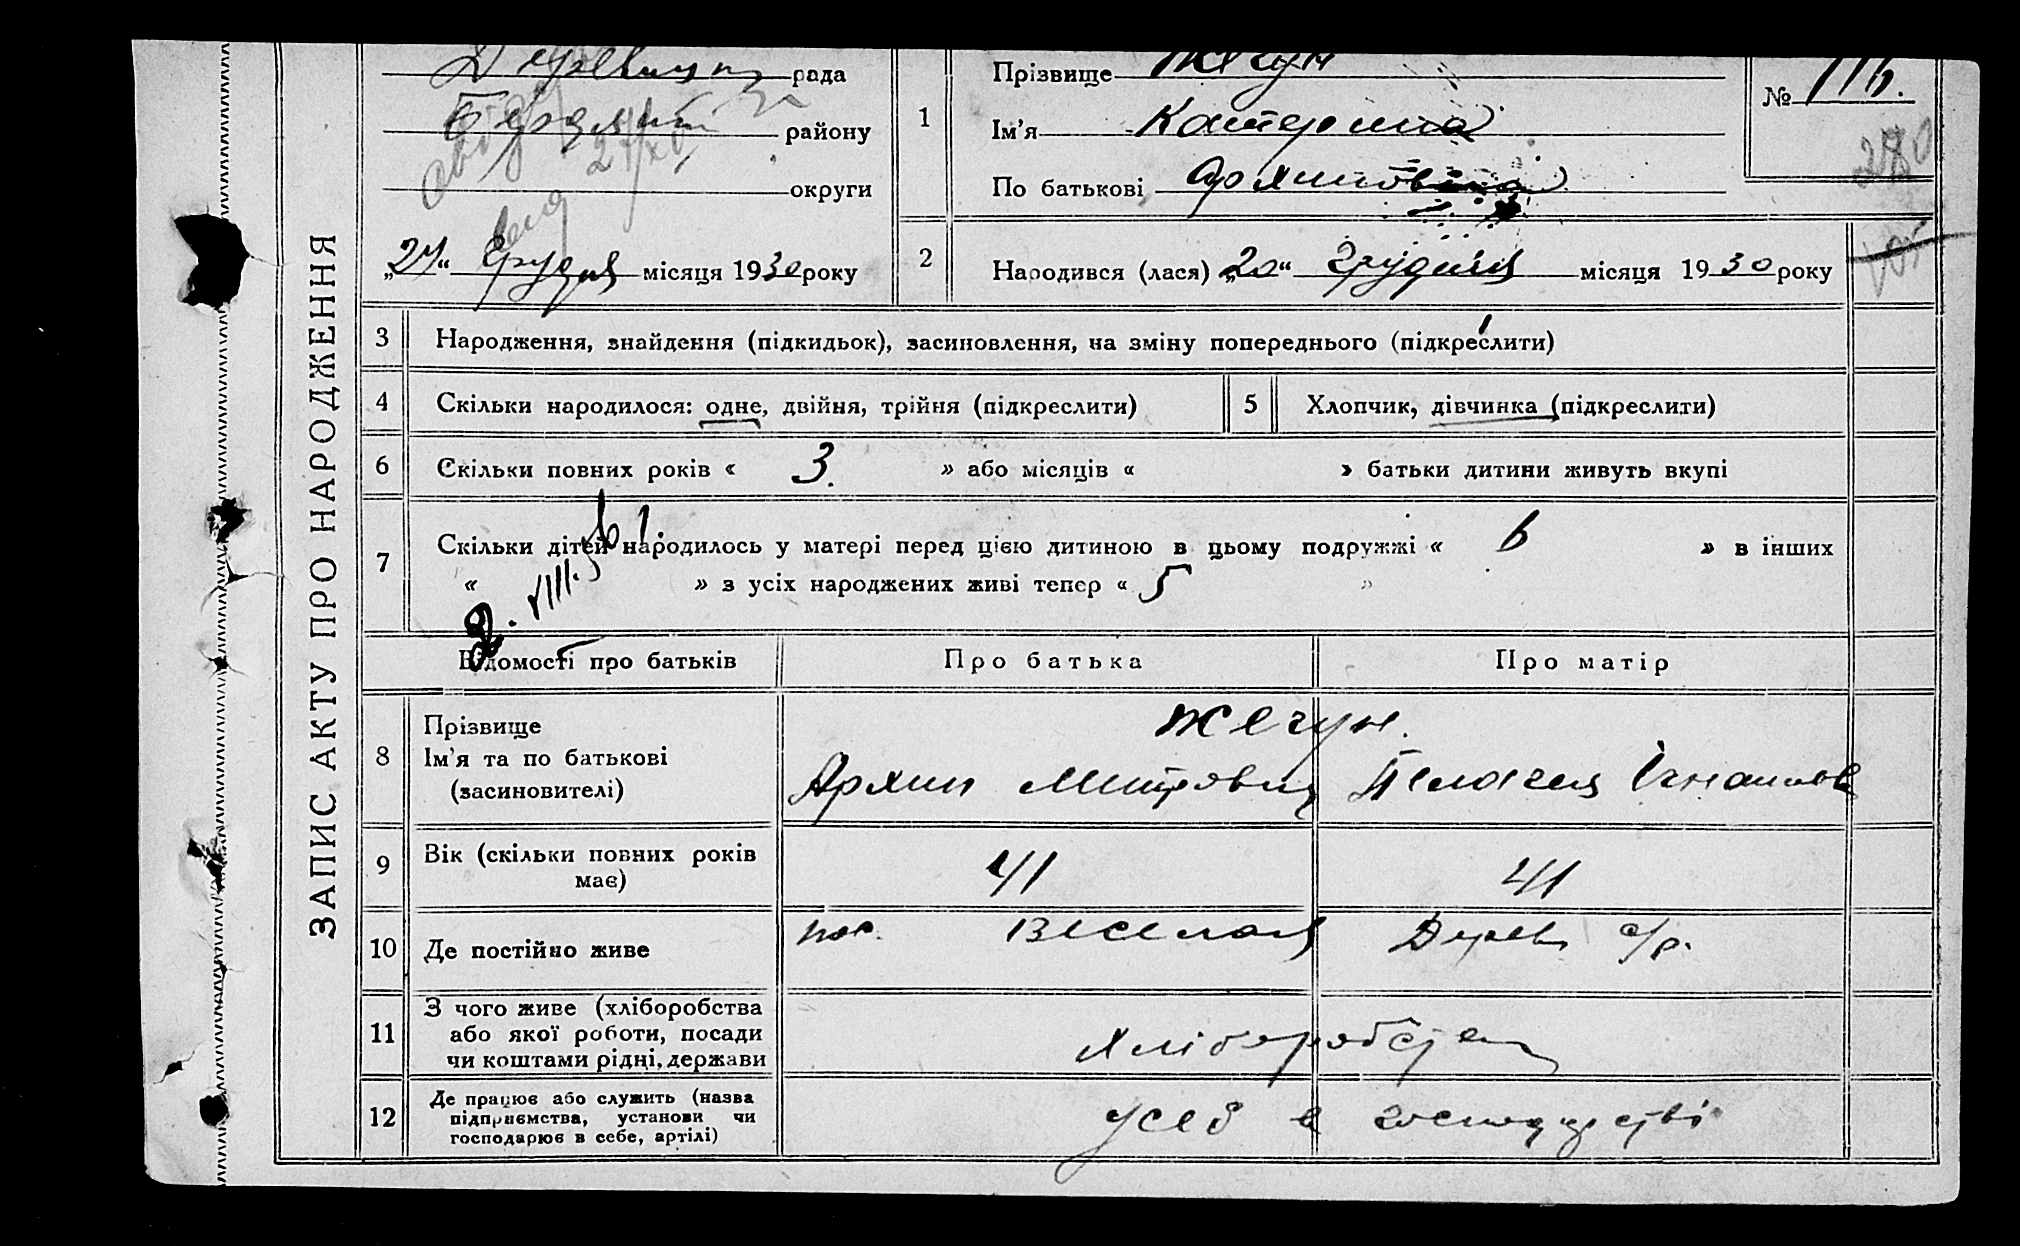 рада
району
округи
„27“ Грудня місяця 1930 року
1
Прізвище Жегун
Ім'я Катерина
По батькові Архиповна
№ 116.
2
Народився (лася) „20“ Грудня місяця 1930 року
ЗАПИС АКТУ ПРО НАРОДЖЕННЯ
3 Народження, знайдення (підкидьок), засиновлення, на зміну попереднього (підкреслити)
4 Скільки народилося: одне, двійня, трійня (підкреслити)
5 Хлопчик, дівчинка (підкреслити)
6 Скільки повних років « 3. » або місяців « » батьки дитини живуть вкупі
7 Скільки дітей народилось у матері перед цією дитиною в цьому подружжі « 6 » в інших
« » з усіх народжених живі тепер « 5 »
Відомості про батьків Про батька Про матір
8 Прізвище
Ім'я та по батькові
(засиновителі)
Жегун.
Архип Митрович Пелагея Ігнатова
9 Вік (скільки повних років
має)
41 41
10 Де постійно живе
пос. Веселая Дерев с/р.
11 З чого живе (хліборобства
або якої роботи, посади
чи коштами рідні, держави
Хліборобства
12 Де працює або служить (назва
підприємства, установи чи
господарює в себе, артілі)
у себе в господарстві